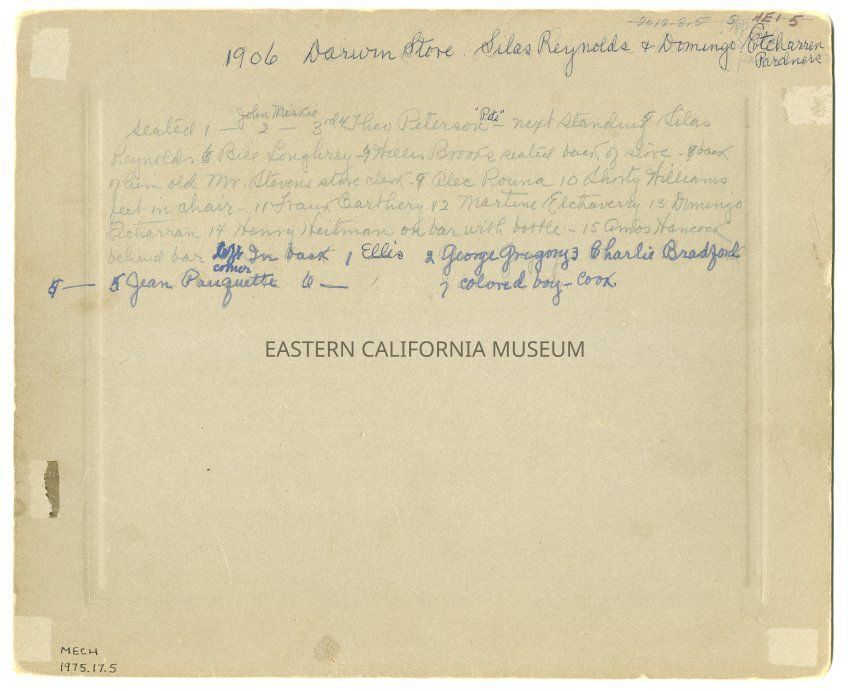 2012.3.5 HEI-5
1906 Darwin Store. Silas Reynolds & Domingo Etcharren
Pardners
John Miskie "Pete"
Seated 1 — 2 — 3rd 4 Theo Peterson — next standing 5 Silas
Reynolds 6 Bill Loughrey - 7 Hillis Brooks seated back of stove - 8 back
of him old Mr. Stevens store clerk - 9 Alec Rouna 10 Shorty Williams
feet in chair - 11 Frank Carthery 12 Martine Etchaverry 13 Domingo
Etcharran 14 Henry Heitman on bar with bottle - 15 Amos Hancock
behind bar left corner In back 1 Ellis 2 George Gregory 3 Charlie Bradford
5 — 5 Jean Pauquette 6 — 7 colored boy - Cook
EASTERN CALIFORNIA MUSEUM
MECH
1975.17.5